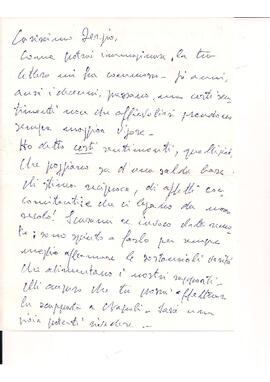 Carissimo Sergio,
Come potrai immaginare, la tua
lettera mi ha commosso. Gli anni,
anzi i decenni, passano, ma certi sen-
timenti non che affievolirsi prendono
sempre maggior vigore.
Ho detto certi sentimenti, quelli,
che poggiano su d'una salda base
di stima reciproca, di affetti con-
che ci legano da mezzo
secolo! Scusami se invece della
sono spinto a farlo per sempre
meglio affermare le sostanziali
che alimentano i nostri rapporti.
Mi auguro che tu possa affrettare
la scappata a Napoli. Sarà una
gioia poterti rivedere.